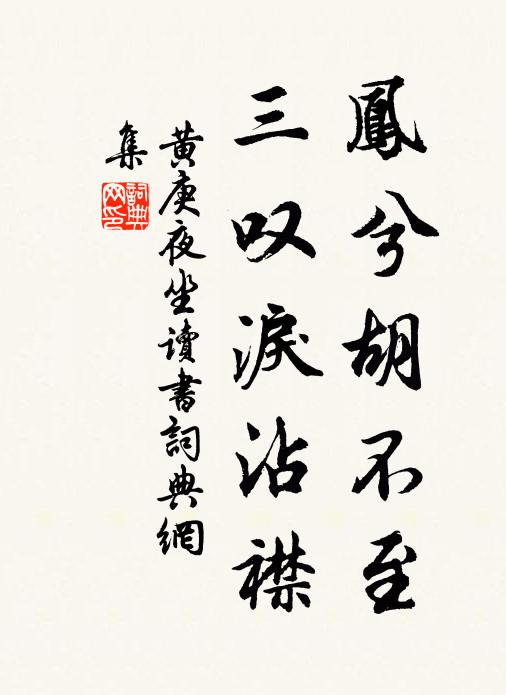 鳳兮胡不至
三叹淚沾襟
黄庚夜坐讀書詞典網
集
詞典网印